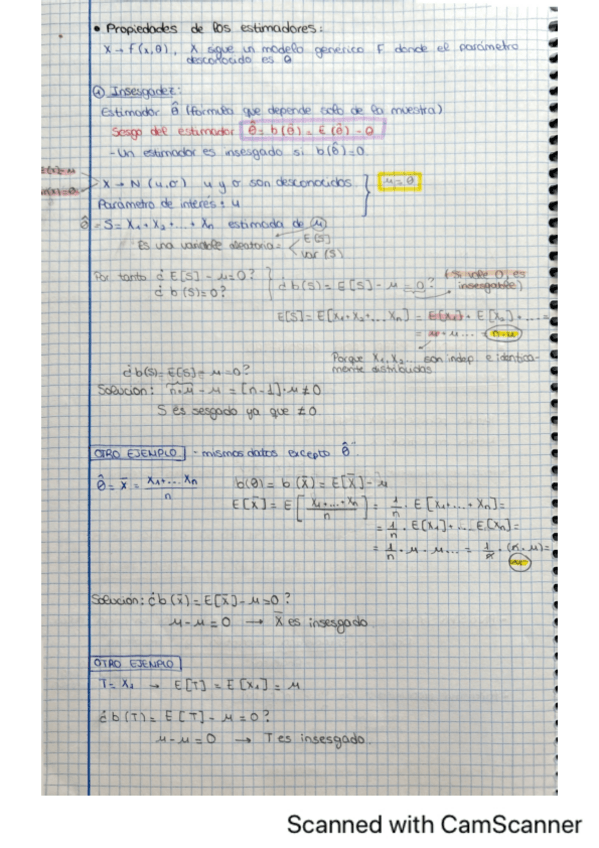 • Propiedades de los estimadores:
X → F(x,θ), X sigue un modelo generico F donde el parámetro
desconocido es θ
① Insesgadez:
Estimador θ̂ (fórmula que depende solo de la muestra)
Sesgo del estimador θ̂ = b(θ̂) = E(θ̂) - θ
- Un estimador es insesgado si b(θ̂)=0
X → N(μ,σ) μ y σ son desconocidos } μ=θ
Parámetro de interés: μ
θ̂ = S = X₁ + X₂ + ... + Xn estimada de μ
Es una variable aleatoria = E[S]
var(S)
Por tanto ¿ E[S] - μ=0?
¿ b(S)=0?
¿ b(S) = E[S] - μ = 0? (Si vale 0, es
insesgable)
E[S] = E[X₁+X₂+... Xn] = E[X₁] + E[X₂] + ... =
= μ + μ ... = n·μ
Porque X₁, X₂... son indep. e identica-
mente distribuidas
¿b(S)=E[S]- μ=0?
Solución: n·μ - μ = [n-1]·μ ≠0
S es sesgado ya que ≠0
OTRO EJEMPLO - mismos datos excepto θ̂
θ̂ = x̄ = X₁+...Xn / n
b(θ) = b(X̄) = E[X̄] - μ
E[X̄] = E[X₁+...+Xn / n] = 1/n · E[X₁+...+Xn] =
= 1/n · E[X₁]+...E[Xn] =
= 1/n · μ · μ... = 1/n · (n·μ) =
μ
Solución: ¿b(x̄) = E[X̄] - μ=0?
μ-μ = 0 → X̄ es insesgado
OTRO EJEMPLO
T= X₁ → E[T] = E[X₁] = μ
¿b(T) = E[T] - μ = 0?
μ-μ = 0 → T es insesgado
Scanned with CamScanner